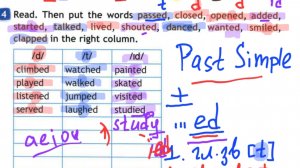 4 Read. Then put the words passed, closed, opened, added,
started, talked, lived, shouted, danced, wanted, smiled,
clapped in the right column.
/d/ /t/ /ɪd/
climbed watched painted
played walked skated
listened jumped visited
served laughed studied
Past Simple
+
... ed
study
aeiou
[t]